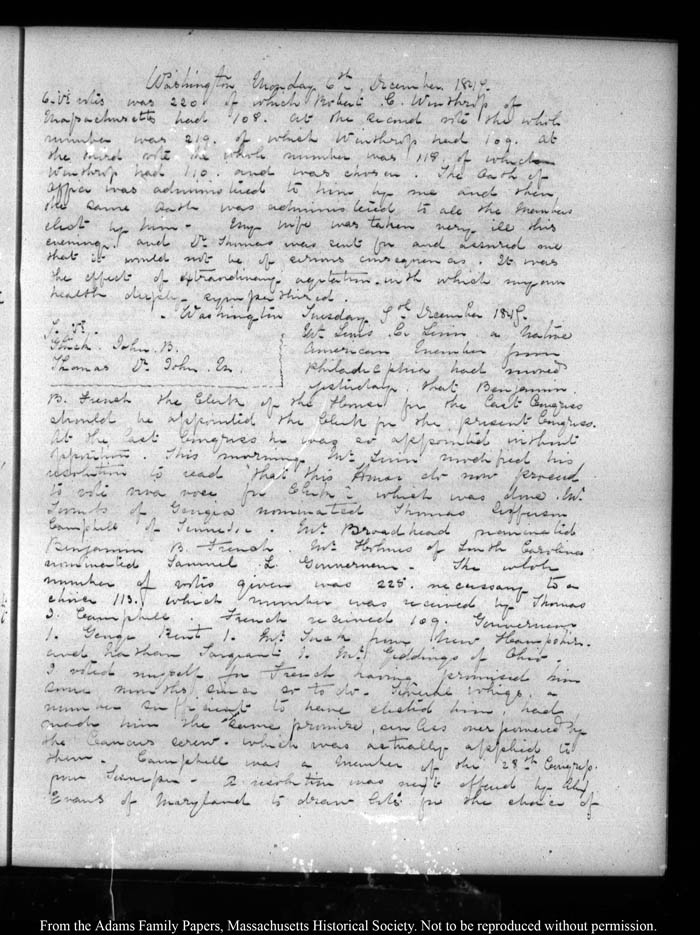 Washington, Monday 6th December 1847.
6. VI votes was 220 of which Robert C. Winthrop of
Massachusetts had 108. at the second vote the whole
number was 219. of which Winthrop had 109. at
the third vote the whole number was 118. of which
Winthrop had 110. and was chosen. The Oath of
Office was administered to him by me and then
the same Oath was administered to all the Members
elect by him - My wife was taken very ill this
evening, and Dr Thomas was sent for and assured me
that it would not be of serious consequences. It was
the effect of extraordinary agitation with which my own
health deeply sympathized.
Washington Tuesday December 1847.
Mr Lewis C. Levin a Native
John B.
American member from
Thomas Dr John M.
Philadelphia had moved
yesterday, that Benjamin
B. French the Clerk of the House for the last Congress
should be appointed the Clerk for the present Congress.
At the last Congress he was so appointed without
opposition. This morning Mr Levin modified his
resolution to read "that this House do now proceed
to vote viva voce for Clerk" which was done. Mr
of Georgia nominated Thomas Jefferson
Campbell of Tennessee. Mr Brodhead nominated
Benjamin B. French. Mr Holmes of South Carolina
nominated Samuel L. Gouverneur - The whole
number of votes given was 225. necessary to a
choice 113. which number was received by Thomas
J. Campbell. French received 109. Gouverneur
1. George Kent 1. Mr Tuck from New Hampshire.
and Nathan Sargeant 1. Mr Giddings of Ohio.
I voted myself for French having promised him
some months since so to do. Several Whigs, a
number sufficient to have elected him, had
made him the same promise, unless overpowered by
the Caucus screw. which was actually applied to
them - Campbell was a member of the 28th Congress
from - A resolution was next offered by Alexr
Evans of Maryland to draw lots for the choice of
From the Adams Family Papers, Massachusetts Historical Society. Not to be reproduced without permission.